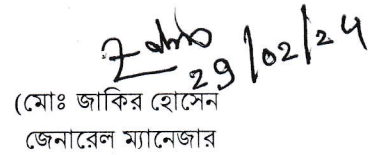 29/02/24
(মোঃ জাকির হোসেন
জেনারেল ম্যানেজার